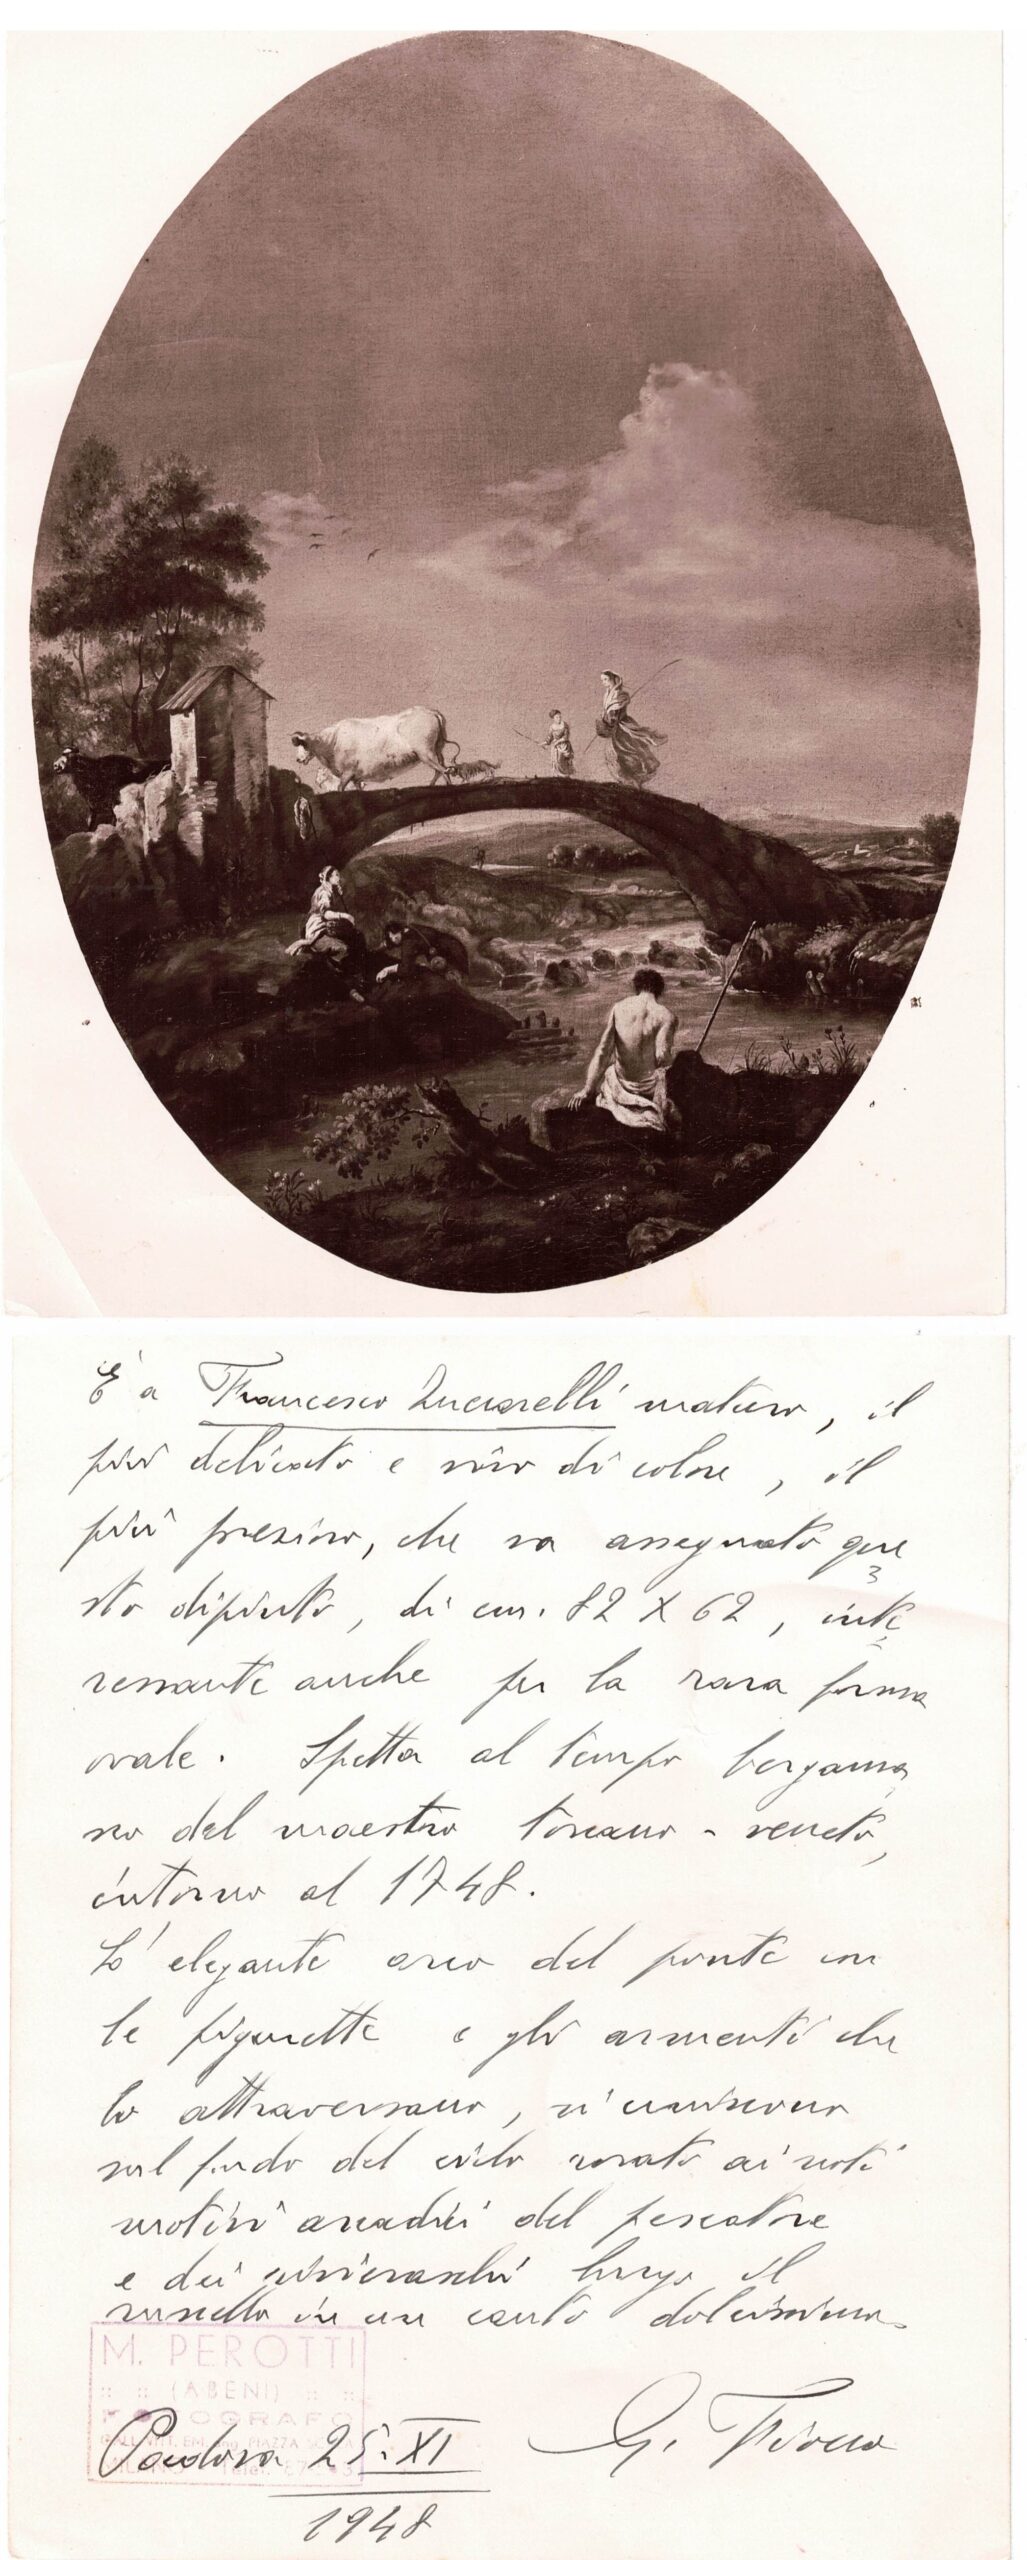 È a Francesco Zuccarelli maturo, il
più delicato e vivo di colore, il
più prezioso, che va assegnato que
sto dipinto, di cm. 82 x 62, inte
ressante anche per la rara forma
ovale. Spetta al tempo bergama
sco del maestro toscano-veneto,
intorno al 1748.
L'elegante arco del ponte con
le figurette e gli armenti che
lo attraversano, si uniscono
sul fondo del cielo rosato ai noti
motivi arcadici del pescatore
e dei lungo il
ruscello in un canto dolcissimo.
M. PEROTTI
(ABENI)
FOTOGRAFO
GALL. VITT. EM. ang. PIAZZA SCALA
Padova 25. XI
1948
G. Fiocco